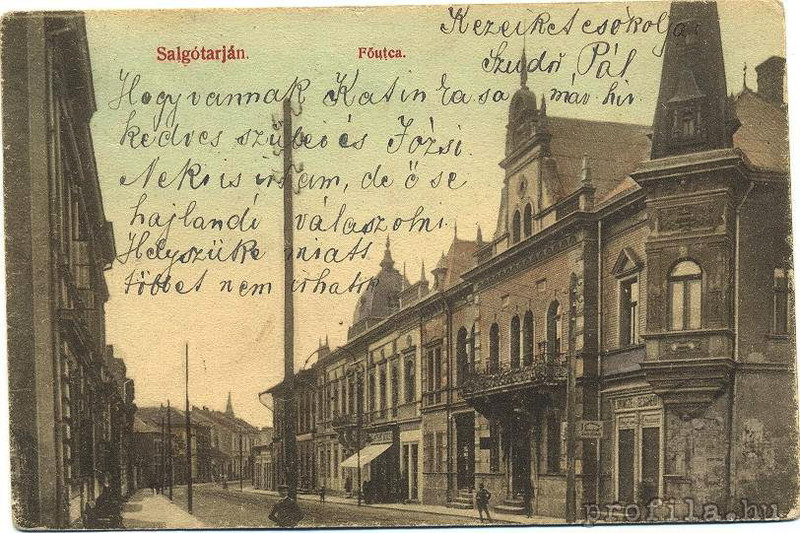 Salgótarján.
Főutca.
Kezeiket csókolja
Pál
máv. hiv
Hogy vannak Katin
kedves szülei és Józsi.
Neki is írtam, de ő se
hajlandi válaszolni.
Helyszüke miatt
többet nem írhatok
profila.hu